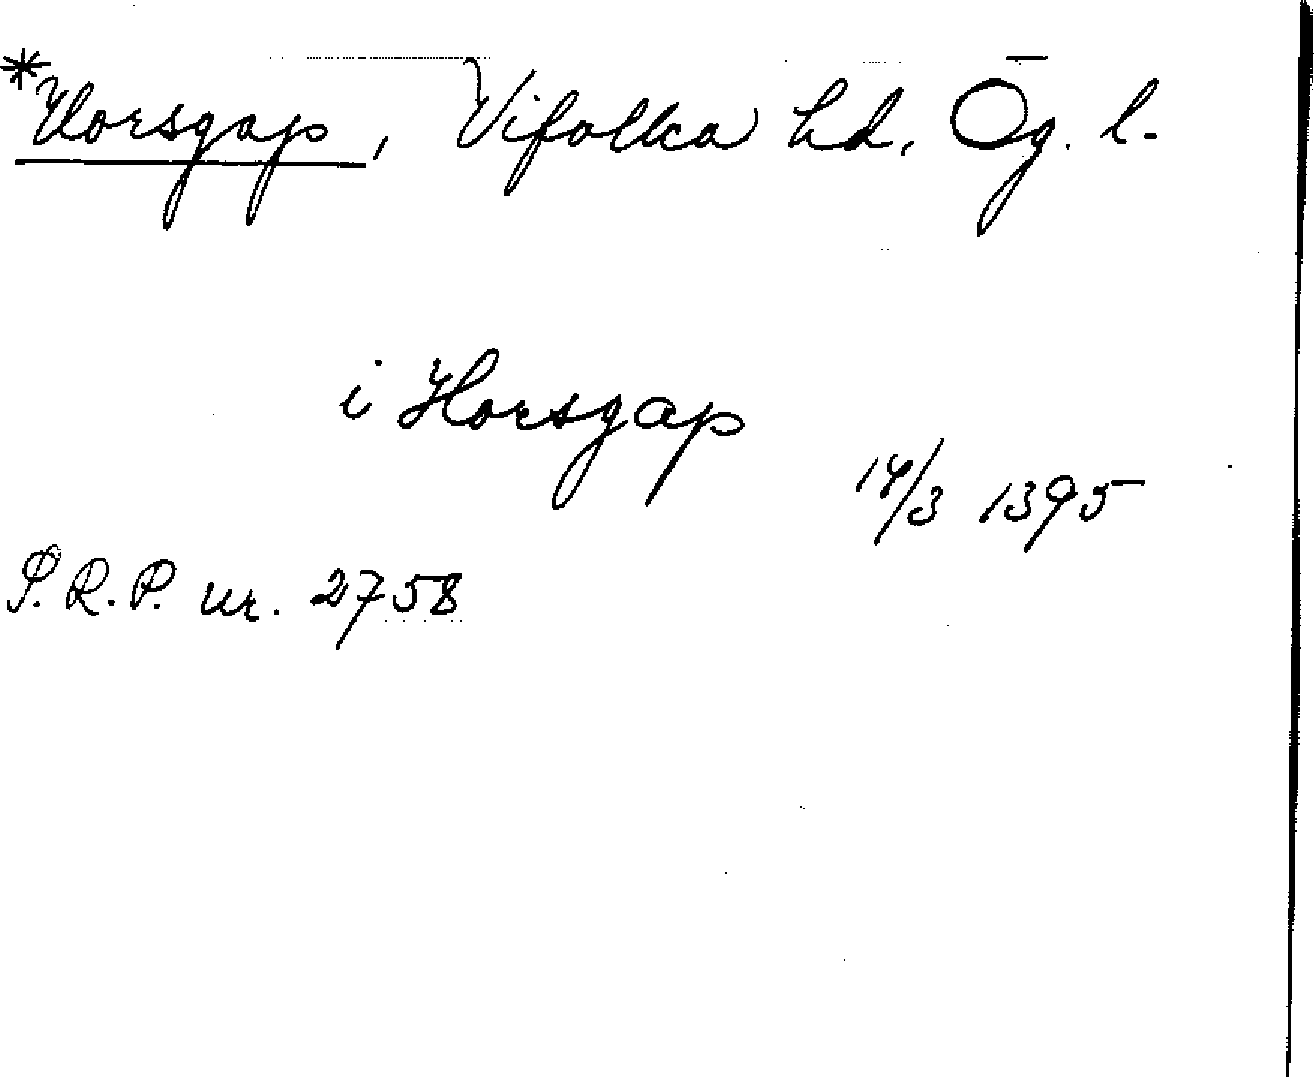 *Horsgap, Vifolka hd, Ög. l.
i Horsgap
14/3 1395
S.R.P. nr. 2758